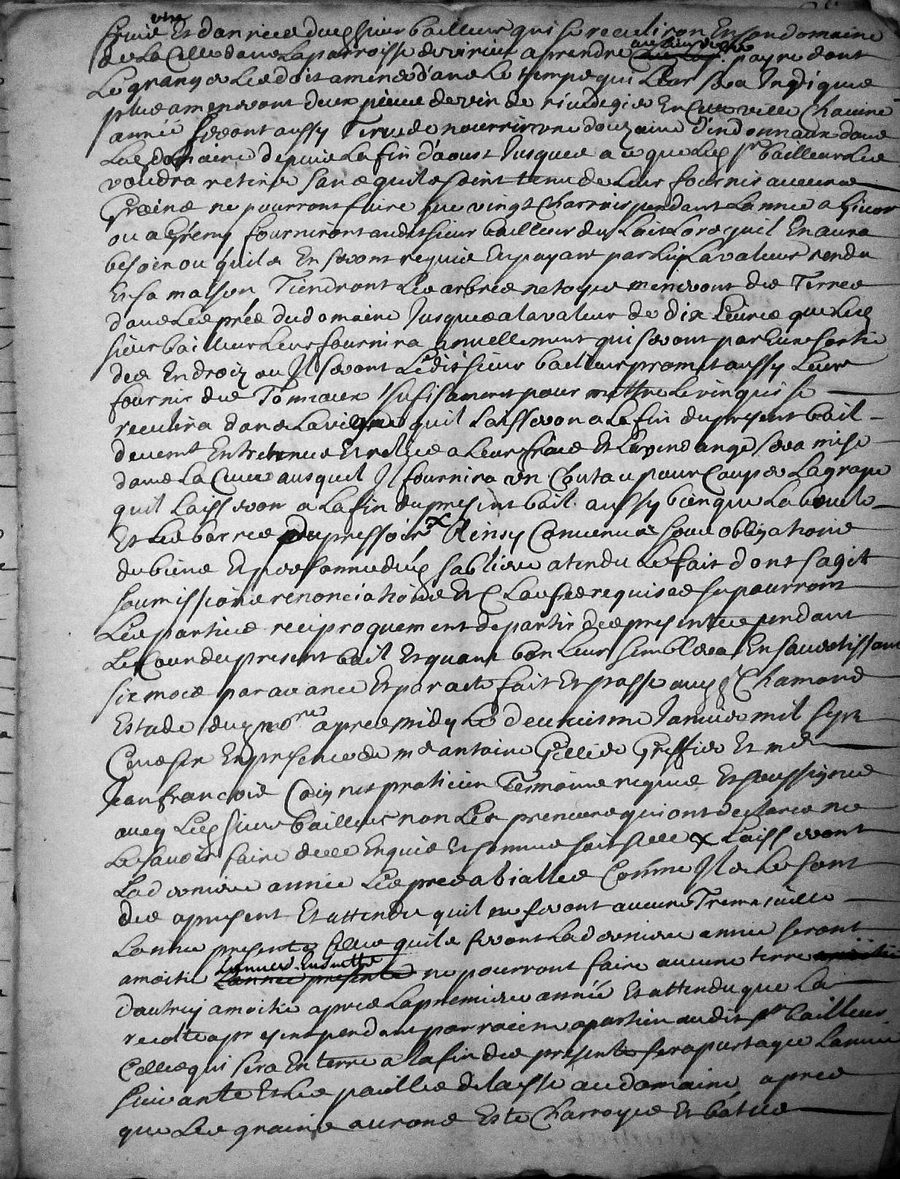 dud sieur bailleur qui se receuliron En son domaine
de La Cille dans La parroisse de a prendre payre dont
Le grangé Les doit amener dans Le temps qui Leur sera Indiqué
plus ameneront deux pieces de vin de En cette ville Chacune
année seront aussy Tenus de nourrir une douzaine d'indonnaux dans
Led domaine depuis La fin d'aoust Jusques a ce que Led sr bailleur Les
voudra retirer sans quils soint tenu de Leur fournir aucune
Graine ne pourront faire que vingt Charrois pendant Lannée a
ou a fourniront audit sieur bailleur du Lait Lors quil En aura
besoin ou quils En seront requis En payant par Luy La valeur rendu
En sa maison Tiendront Les arbres netoyés meneront des Terres
dans Les prés du domaine Jusques a La valeur de dix Livres que Led
sieur bailleur Leur fournira annuellement qui seront par Eux
des Endroiz ou Il seront Ledit sieur bailleur promet aussy Leur
fournir des Tonneaux sufisament pour mettre Le vin qui se
receulira dans La vigne quil Laisseron a La fin du present bail
deuement Entretenus Et reliés a Leur frais Et La vendange sera mise
dans La Cuve ausquel Il fournira un Couteau pour Couper La grape
quil Laisseron a La fin du present bail aussy bien que La
Et Les barres du pressoir x Ainsy Convenu sous obligations
de biens Et personne dud sablier atendu Le fait dont sagit
soumissions renonciations Et Clauses requises se pourront
Les parties reciproquement departir des presentes pendant
Le Cour du present bail Et quant bon Leur semblera En savertissant
six mois par avance Et par acte fait Et passé aud St Chamond
Estude du nore apres midy Le deuxiesme Janvier mil sept
Cens six En presence de me antoine Gillier Greffier Et me
Jean francois praticien Temoins requis Et soussignés
avec Led sieur bailleur non Les preneurs qui ont declaré ne
Le savoir faire de ce Enquis Et sommé x Laisseront
La derniere année Les prés abialles Comme Ils Le sont
des apresent Et attendu quil ne seront aucuns
Lannée presente celles quils seront La derniere année seront
amoitié ne pourront faire aucune terre
d'autruy amoitié apres La premiere année Et attendu que La
recolte apresent pendant par racine apartien audit sr bailleur
Celle qui sera En terre a La fin des presente sera partagé Lannée
suivante Et Les pailles delaissé au domaine apres
que Les grains aurons Esté Charroyé Et batus